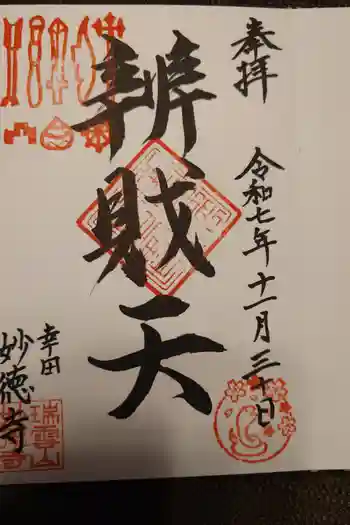 奉拝
令和七年十一月三十日
辨財天
幸田
妙徳寺
瑞雲山